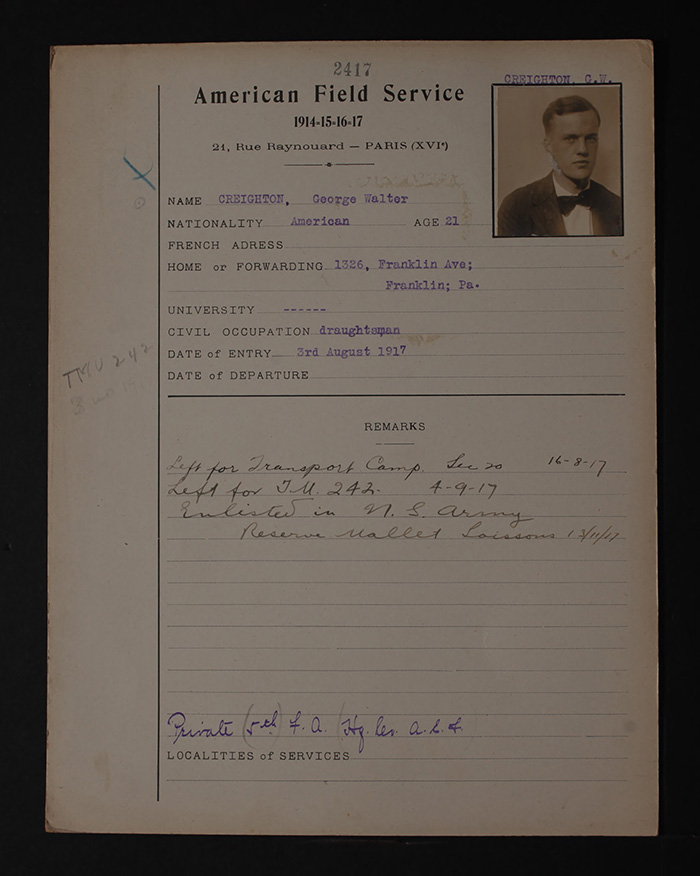 2417
CREIGHTON, G.W.
American Field Service
1914-15-16-17
21, Rue Raynouard — PARIS (XVIe)
NAME CREIGHTON, George Walter
NATIONALITY American AGE 21
FRENCH ADRESS
HOME or FORWARDING 1326, Franklin Ave;
Franklin; Pa.
UNIVERSITY ------
CIVIL OCCUPATION draughtsman
DATE of ENTRY 3rd August 1917
DATE of DEPARTURE
TMU 242
REMARKS
Left for Transport Camp. Sec 20 16-8-17
Left for T.M. 242. 4-9-17
Enlisted in U. S. Army
Reserve Mallet Soissons 13/11/17
Private (5th) F. A. (Hq. Co. A. E. F.
LOCALITIES of SERVICES